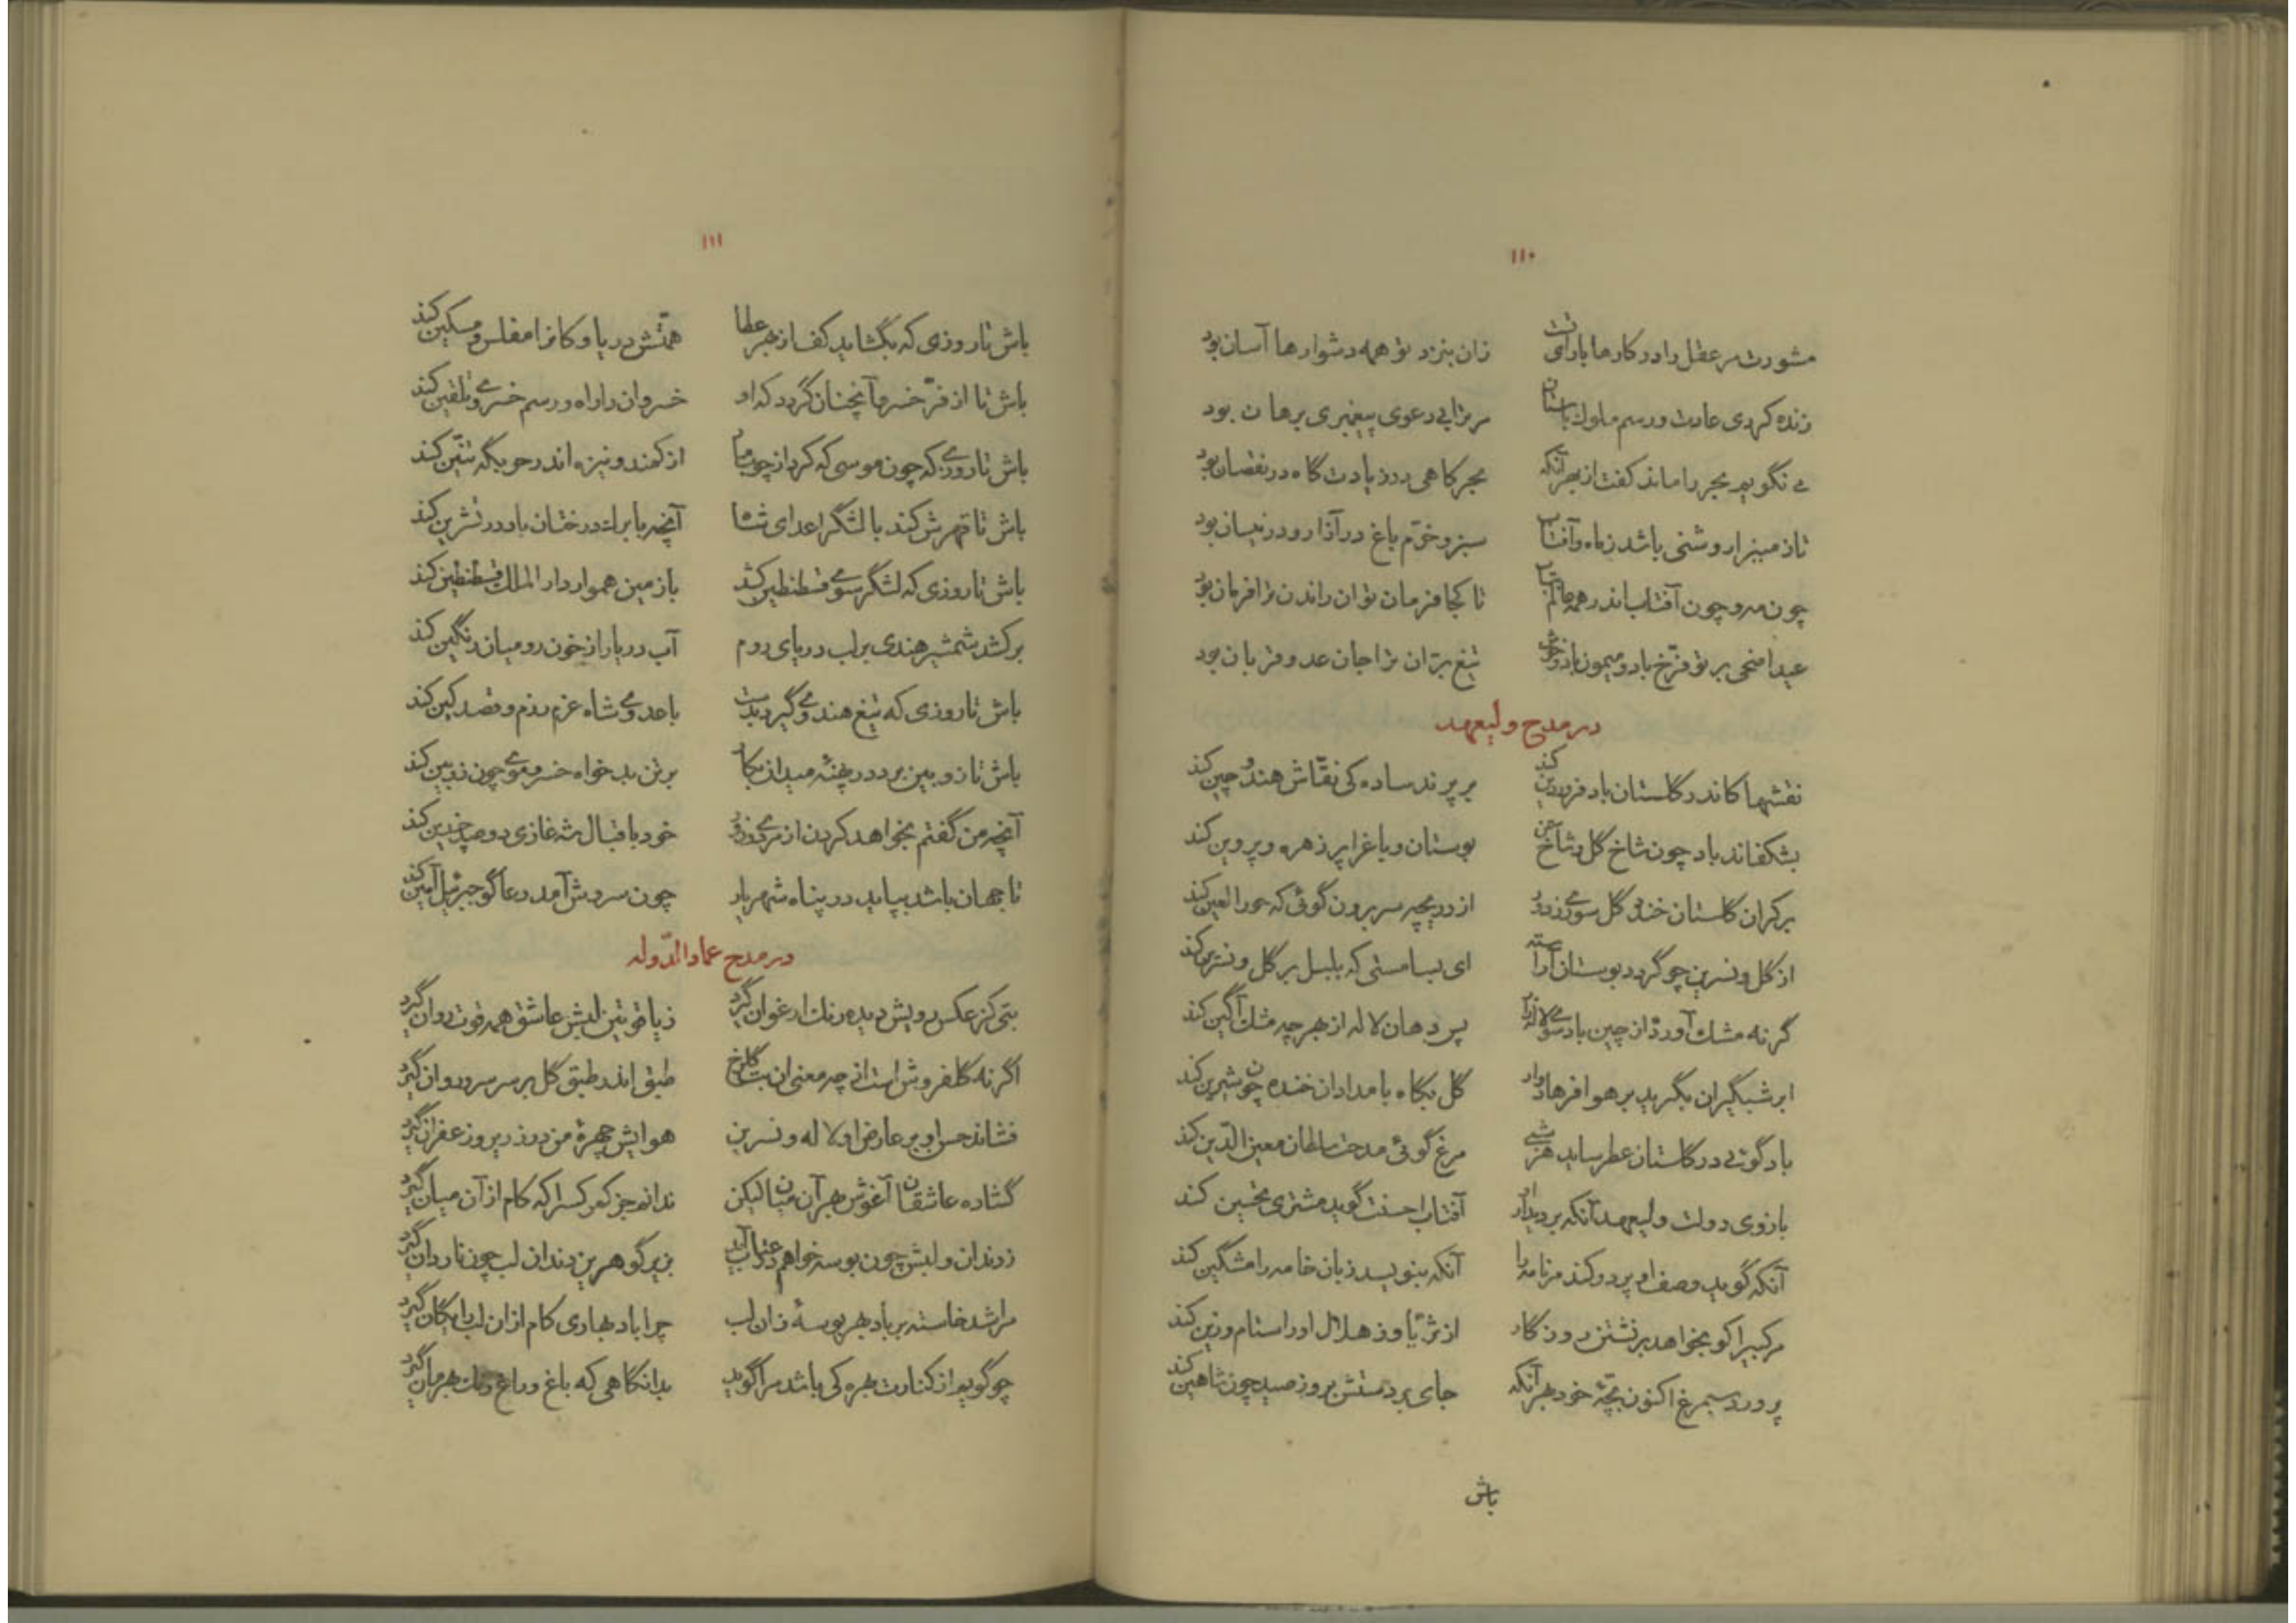 ۱۱۰
مشورت مر عقل را در کارها با رای تست زان بنزد تو همه دشوارها آسان بود
زنده کردی عادت و رسم ملوک باستان مر ترا بی دعوی پیغمبری برهان بود
می نگویم بحر را ماند کفت از بهر آنکه بحر گاهی در زیادت گاه در نقصان بود
تا زمینرا روشنی باشد ز ماه و آفتاب سبز و خرّم باغ در آذار و در نیسان بود
چون مه و چون آفتاب اندر همه عالم بتاب تا کجا فرمان توان راندن ترا فرمان بود
عید اضحی بر تو فرّخ باد و میمون باد و خوش تیغ برّان ترا جان عدو قربان بود
در مدح ولیعهد
نقشها کاندر گلستان باد فروردین کند بر پرند ساده کی نقّاش هند و چین کند
بشکفاند باد چون شاخ گل و شاخ سمن بوستان و باغ را پر زهره و پروین کند
بر کران گلستان خندد گل سوری ز دور از دریچه سر برون گوئی که حور العین کند
از گل و نسرین چو گردد بوستان آراسته ای بسا مستی که بلبل بر گل و نسرین کند
گر نه مشک آورد از چین باد سوی لاله زار پس دهان لاله از بهر چه مشک آگین کند
ابر شبگیران بگرید بر هوا فرهاد وار گل پگاه بامدادان خنده چون شیرین کند
باد گوئی در گلستان عطر ساید هر شبی مرغ گوئی مدحت سلطان معین الدّین کند
بازوی دولت ولیعهد آنکه بر دیدار او آفتاب احسنت گوید مشتری تحسین کند
آنکه گوید وصف او پر در کند مر نامه را آنکه بنویسد زبان خامه را مشگین کند
مرکبیرا کو بخواهد بر نشستن روزگار از ثریّا وز هلال او را ستام و زین کند
پرورد سیمرغ اکنون بچّهٔ خود بهر آنکه جای بر دستش بروز صید چون شاهین کند
باش
۱۱۱
باش تا روزی که بگشاید کف از بهر عطا همّتش دریا و کانرا مفلس و مسکین کند
باش تا از فرّ خسرو آنچنان گردد که او خسروان را راه و رسم خسروی تلقین کند
باش تا روزی که چون موسی که کرد از چوب مار از کمند و نیزه اندر حربگه تنّین کند
باش تا قهرش کند با لشگر اعدای شاه آنچه با برگ درختان باد در تشرین کند
باش تا روزی که لشگر سوی قسطنطین کشد با زمین هموار دار الملک قسطنطین کند
بر کشد شمشیر هندی بر لب دریای روم آب دریا را ز خون رومیان رنگین کند
باش تا روزی که تیغ هندوی گیرد بدست با عدوی شاه عزم رزم و قصد کین کند
باش تا زوبین برد در پهنهٔ میدان بکار بر تن بدخواه خسرو موی چون زوبین کند
آنچه من گفتم بخواهد کردن از مردی و زور خود باقبال شه غازی دو صد چندین کند
تا جهان باشد بپاید در پناه شهریار چون سروش آمد دعاگو جبرئیل آمین کند
در مدح عماد الدّوله
بتی کز عکس رویش دیده رنگ ارغوان گیرد ز یاقوتین لبش عاشق همه قوت روان گیرد
اگر نه گلفروش است از چه معنی ان بت گلرخ طبق اندر طبق گل بر سر سرو روان گیرد
فشاند حسن او بر عارض او لاله و نسرین هوایش چهرهٔ من در زریر و زعفران گیرد
گشاده عاشقان آغوش بهر آن میان لیکن ندانم جز کمر کس را که کام از آن میان گیرد
ز دندان و لبش چون بوسه خواهم در عتاب آید بزیر گوهرین دندان لب چون ناردان گیرد
مرا شد خاسته بر باد بهر بوسهٔ زان لب چرا باد بهاری کام از ان لب رایگان گیرد
چو گویم از کنارت بهره کی باشد مرا گوید بدانگاهی که باغ و راغ رنگ بهرمان گیرد